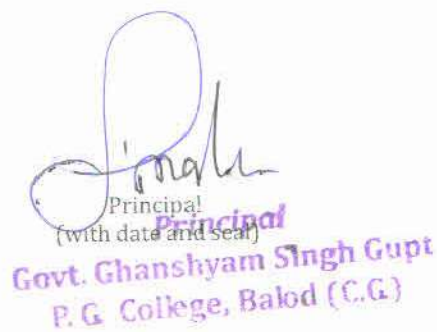 Principal
(with date and seal)
Principal
Govt. Ghanshyam Singh Gupt
P. G. College, Balod (C.G.)